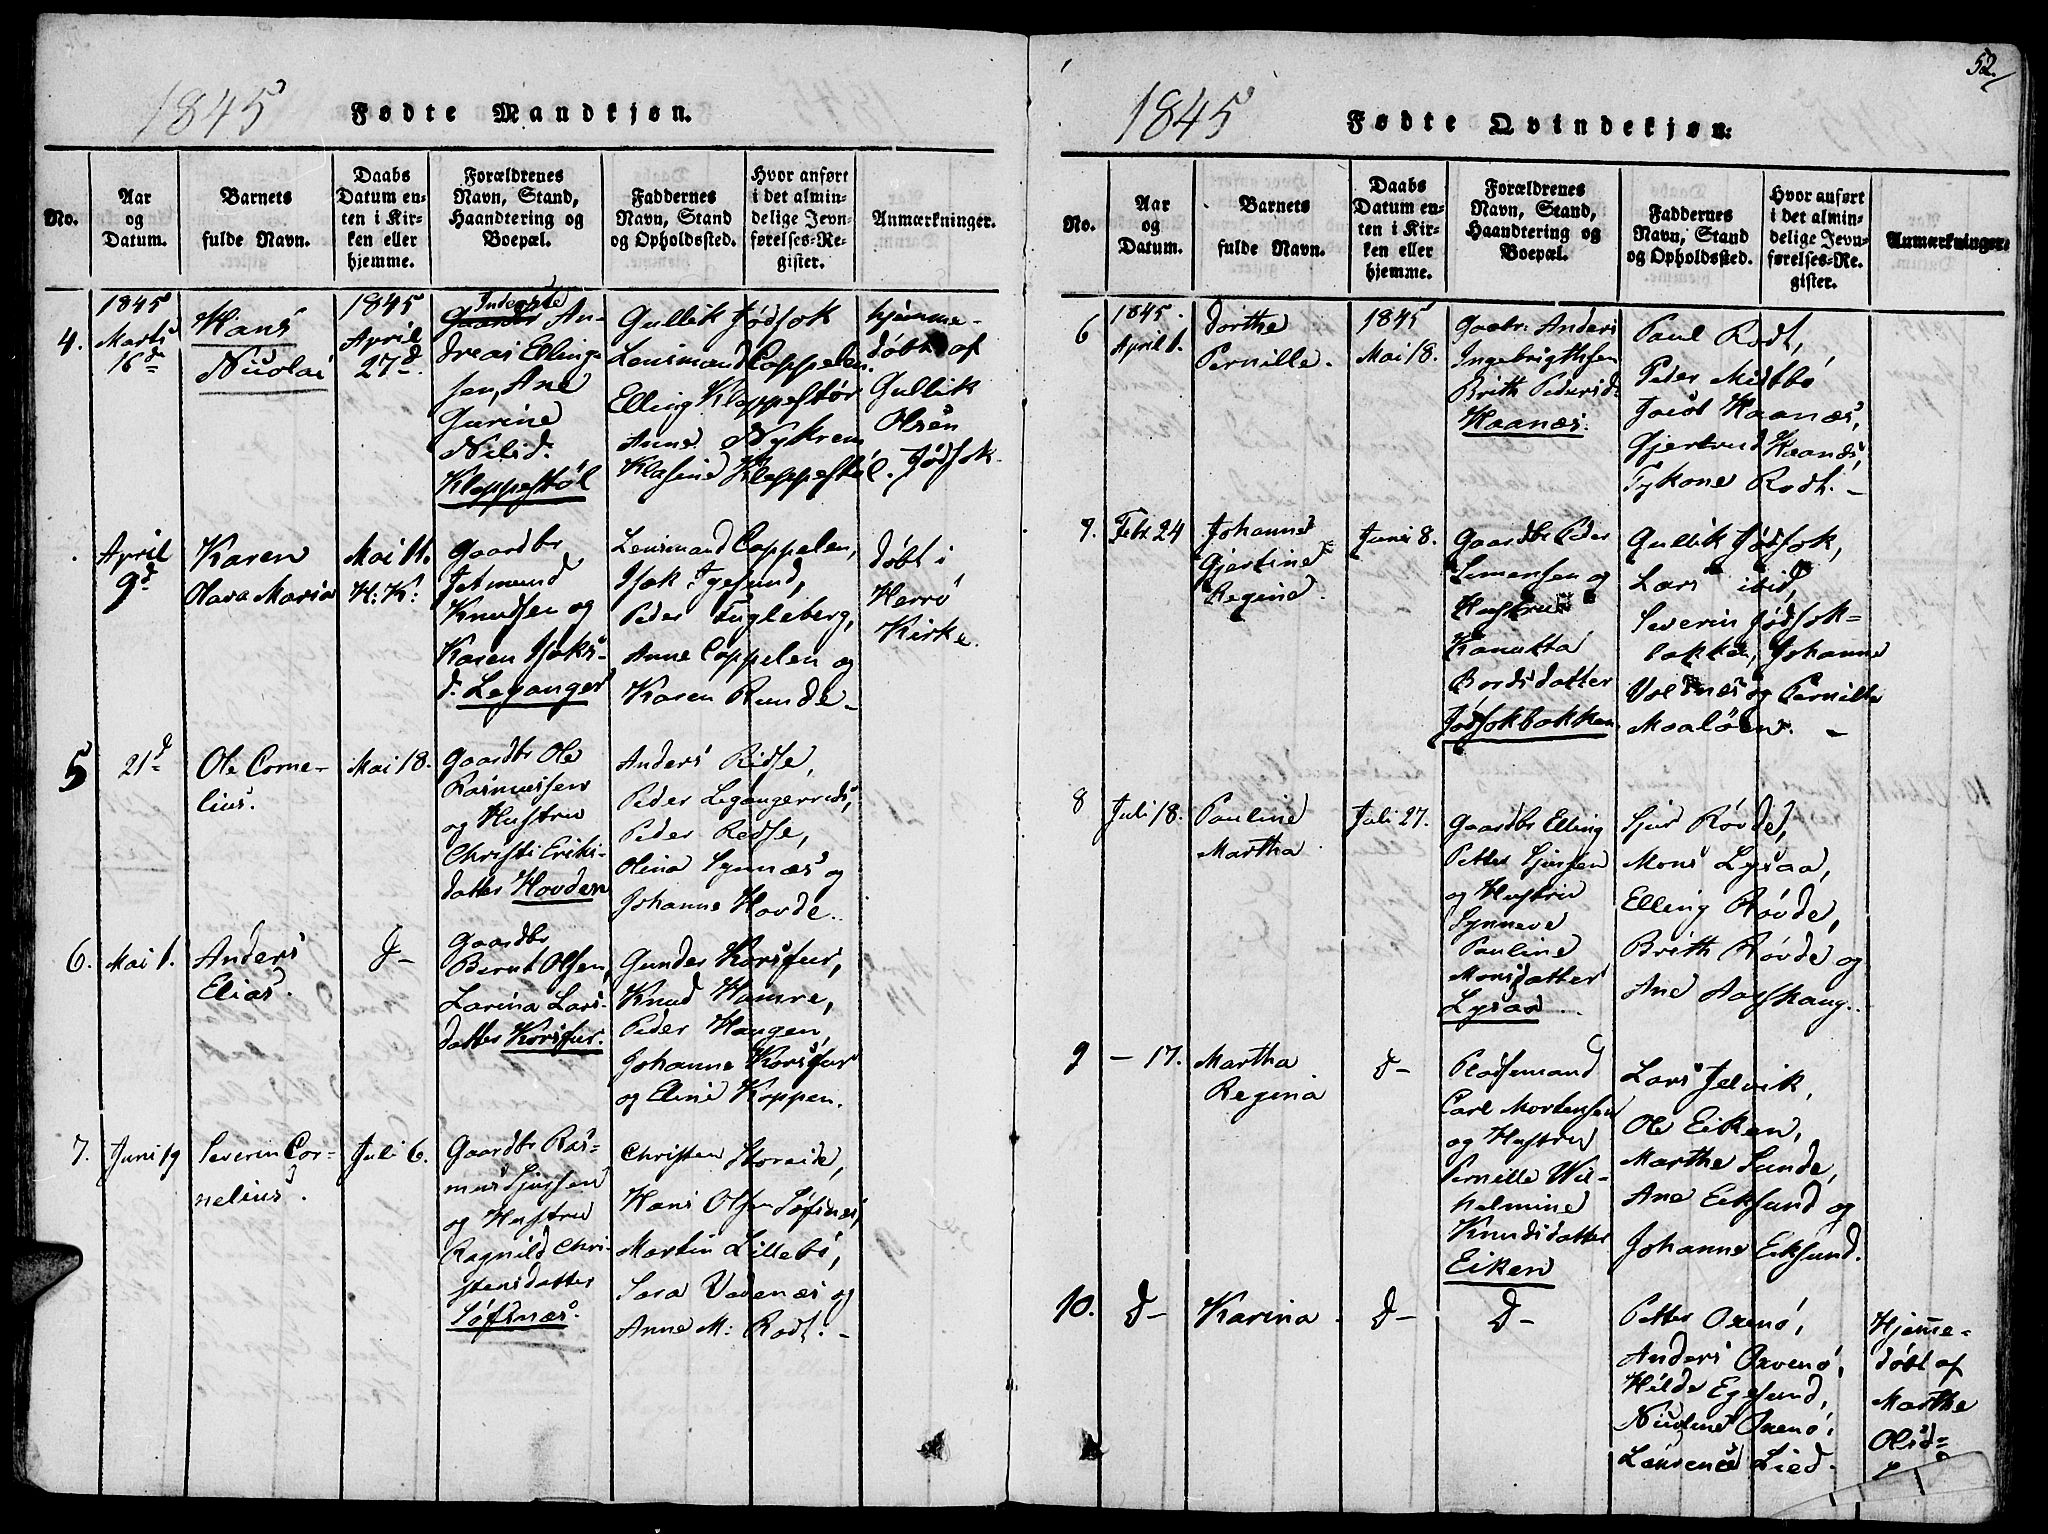 1845
Fødte Mandkjøn.
No.
Aar
og
Datum.
Barnets
fulde Navn.
Daabs
Datum en-
ten i Kir-
ken eller
hjemme.
Forældrenes
Navn, Stand,
Haandtering og
Boepæl.
Faddernes
Navn, Stand
og Opholdssted.
Hvor anført
i det almin-
delige Jevn-
førelses-Re-
gister.
Anmærkninger.
4.
1845
Marts
16d
Hans
Nicolai
1845
April
27d
Inderste
Gaardbr An-
dreas Ellings-
sen, Ane
Gurine
Nilsd.
Kloppestöl
Gullik Jödsok
Lensmand Coppelen.
Elling Kloppestöl
Anne Nykrem
Klasine Kloppestöl.
hjemme-
döbt af
Gullik
Olsen
Jödsok.
April
9d
Karen
Olava Maria
Mai 11.
H: K:
Gaardbr
Jetmund
Knudsen og
Karen Isaks-
d. Leganger
Lensmand Coppelen,
Isak Igesund,
Peder Fugleberg,
Anne Coppelen og
Karen Runde.
Döbt i
Herrö
Kirke.
5
21d
Ole Corne-
lius.
Mai 18.
Gaardbr Ole
Rasmussen
og Hustru
Christi Eriks-
datter Hovden
Anders Ridse,
Peder Legangerreds,
Peder Redse,
Olina Synnæs og
Johanne Hovde.
6.
Mai 1.
Anders
Elias.
d-
Gaardbr
Bernt Olsen,
Larina Lars-
datter Korsfur.
Gunder Korsfur,
Knud Hamre,
Peder Haugen,
Johanne Korsfur
og Eline Koppen.
7.
Juni 19
Severin Cor-
nelius.
Juli 6.
Gaardbr Ras-
mus Sjursen
og Hustru
Ragnild Chri-
stensdatter
Söfsnæs.
Christen Storeide,
Hans Olsen Söfsnes,
Martin Lillebö,
Sara Vadenæs og
Anne M: Rodt. -
52.
1845
Fødte Qvindekjøn:
No.
Aar
og
Datum.
Barnets
fulde Navn.
Daabs
Datum en-
ten i Kir-
ken eller
hjemme.
Forældrenes
Navn, Stand,
Haandtering og
Boepæl.
Faddernes
Navn, Stand
og Opholdssted.
Hvor anført
i det almin-
delige Jevn-
førelses-Re-
gister.
Anmærkninger.
6
1845.
April 1.
Dorthe
Pernille.
1845
Mai 18.
Gaabr. Anders
Ingebrigthsen
Brith Pedersd.
Haanæs.
Paul Rodt,
Peder Midtbö
Jacob Haanæs,
Gjertrud Haanæs,
Tykone Rodt. -
7.
Febr. 24
Johanne
Gjertine
Regine.
Juni 8.
Gaardbr Peder
Simensen og
Hustru
Kanutta
Bordsdatter
Jödsokbakken
Gullik Jödsok,
Lars ibid,
Severin Jödsok-
bakken, Johanne
Voldnæs og Pernille
Maalöen. -
8
Juli 18.
Pauline
Martha.
Juli 27.
Gaardbr Elling
Petter Sjursen
og Hustru
Synneve
Pauline
Monsdatter
Lysaa.
Sjur Rövde,
Mons Lysaa,
Elling Rövde,
Brith Rövde og
Ane Aasshaug.
9
- 17.
Martha
Regina
d-
Pladsemand
Carl Mortensen
og Hustru
Pernille Wil-
helmine
Knudsdatter
Eiken
Lars Jelvik,
Ole Eiken,
Marthe Sunde,
Ane Eiksund og
Johanne Eiksund.
10.
d-
Karina.
d-
d-
Petter Oxenö,
Anders Oxenö,
Hilde Egesund,
Nicoline Oxenö,
Laurense Lied.
Hjem̅e-
döbt af
Marthe
Olsd=